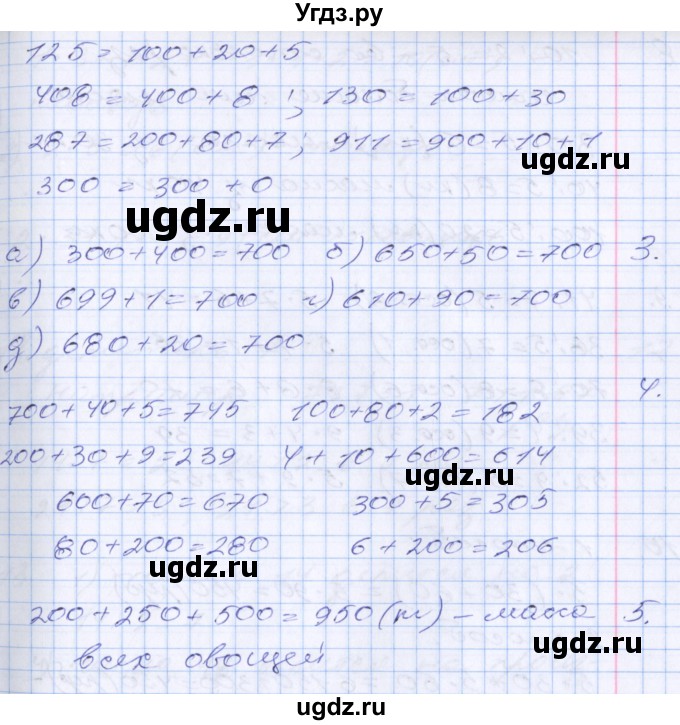 Угдз.ру
125 = 100 + 20 + 5
408 = 400 + 8 ; 130 = 100 + 30
287 = 200 + 80 + 7 ; 911 = 900 + 10 + 1
ugdz.ru
300 = 300 + 0
ugdz.ru
а) 300 + 400 = 700 б) 650 + 50 = 700 3.
в) 699 + 1 = 700 г) 610 + 90 = 700
д) 680 + 20 = 700
4.
700 + 40 + 5 = 745 100 + 80 + 2 = 182
200 + 30 + 9 = 239 4 + 10 + 600 = 614
ugdz.ru
600 + 70 = 670 300 + 5 = 305
80 + 200 = 280 6 + 200 = 206
ugdz.ru
200 + 250 + 500 = 950 (т) – масса 5.
всех овощей
ugdz.ru
ugdz.ru